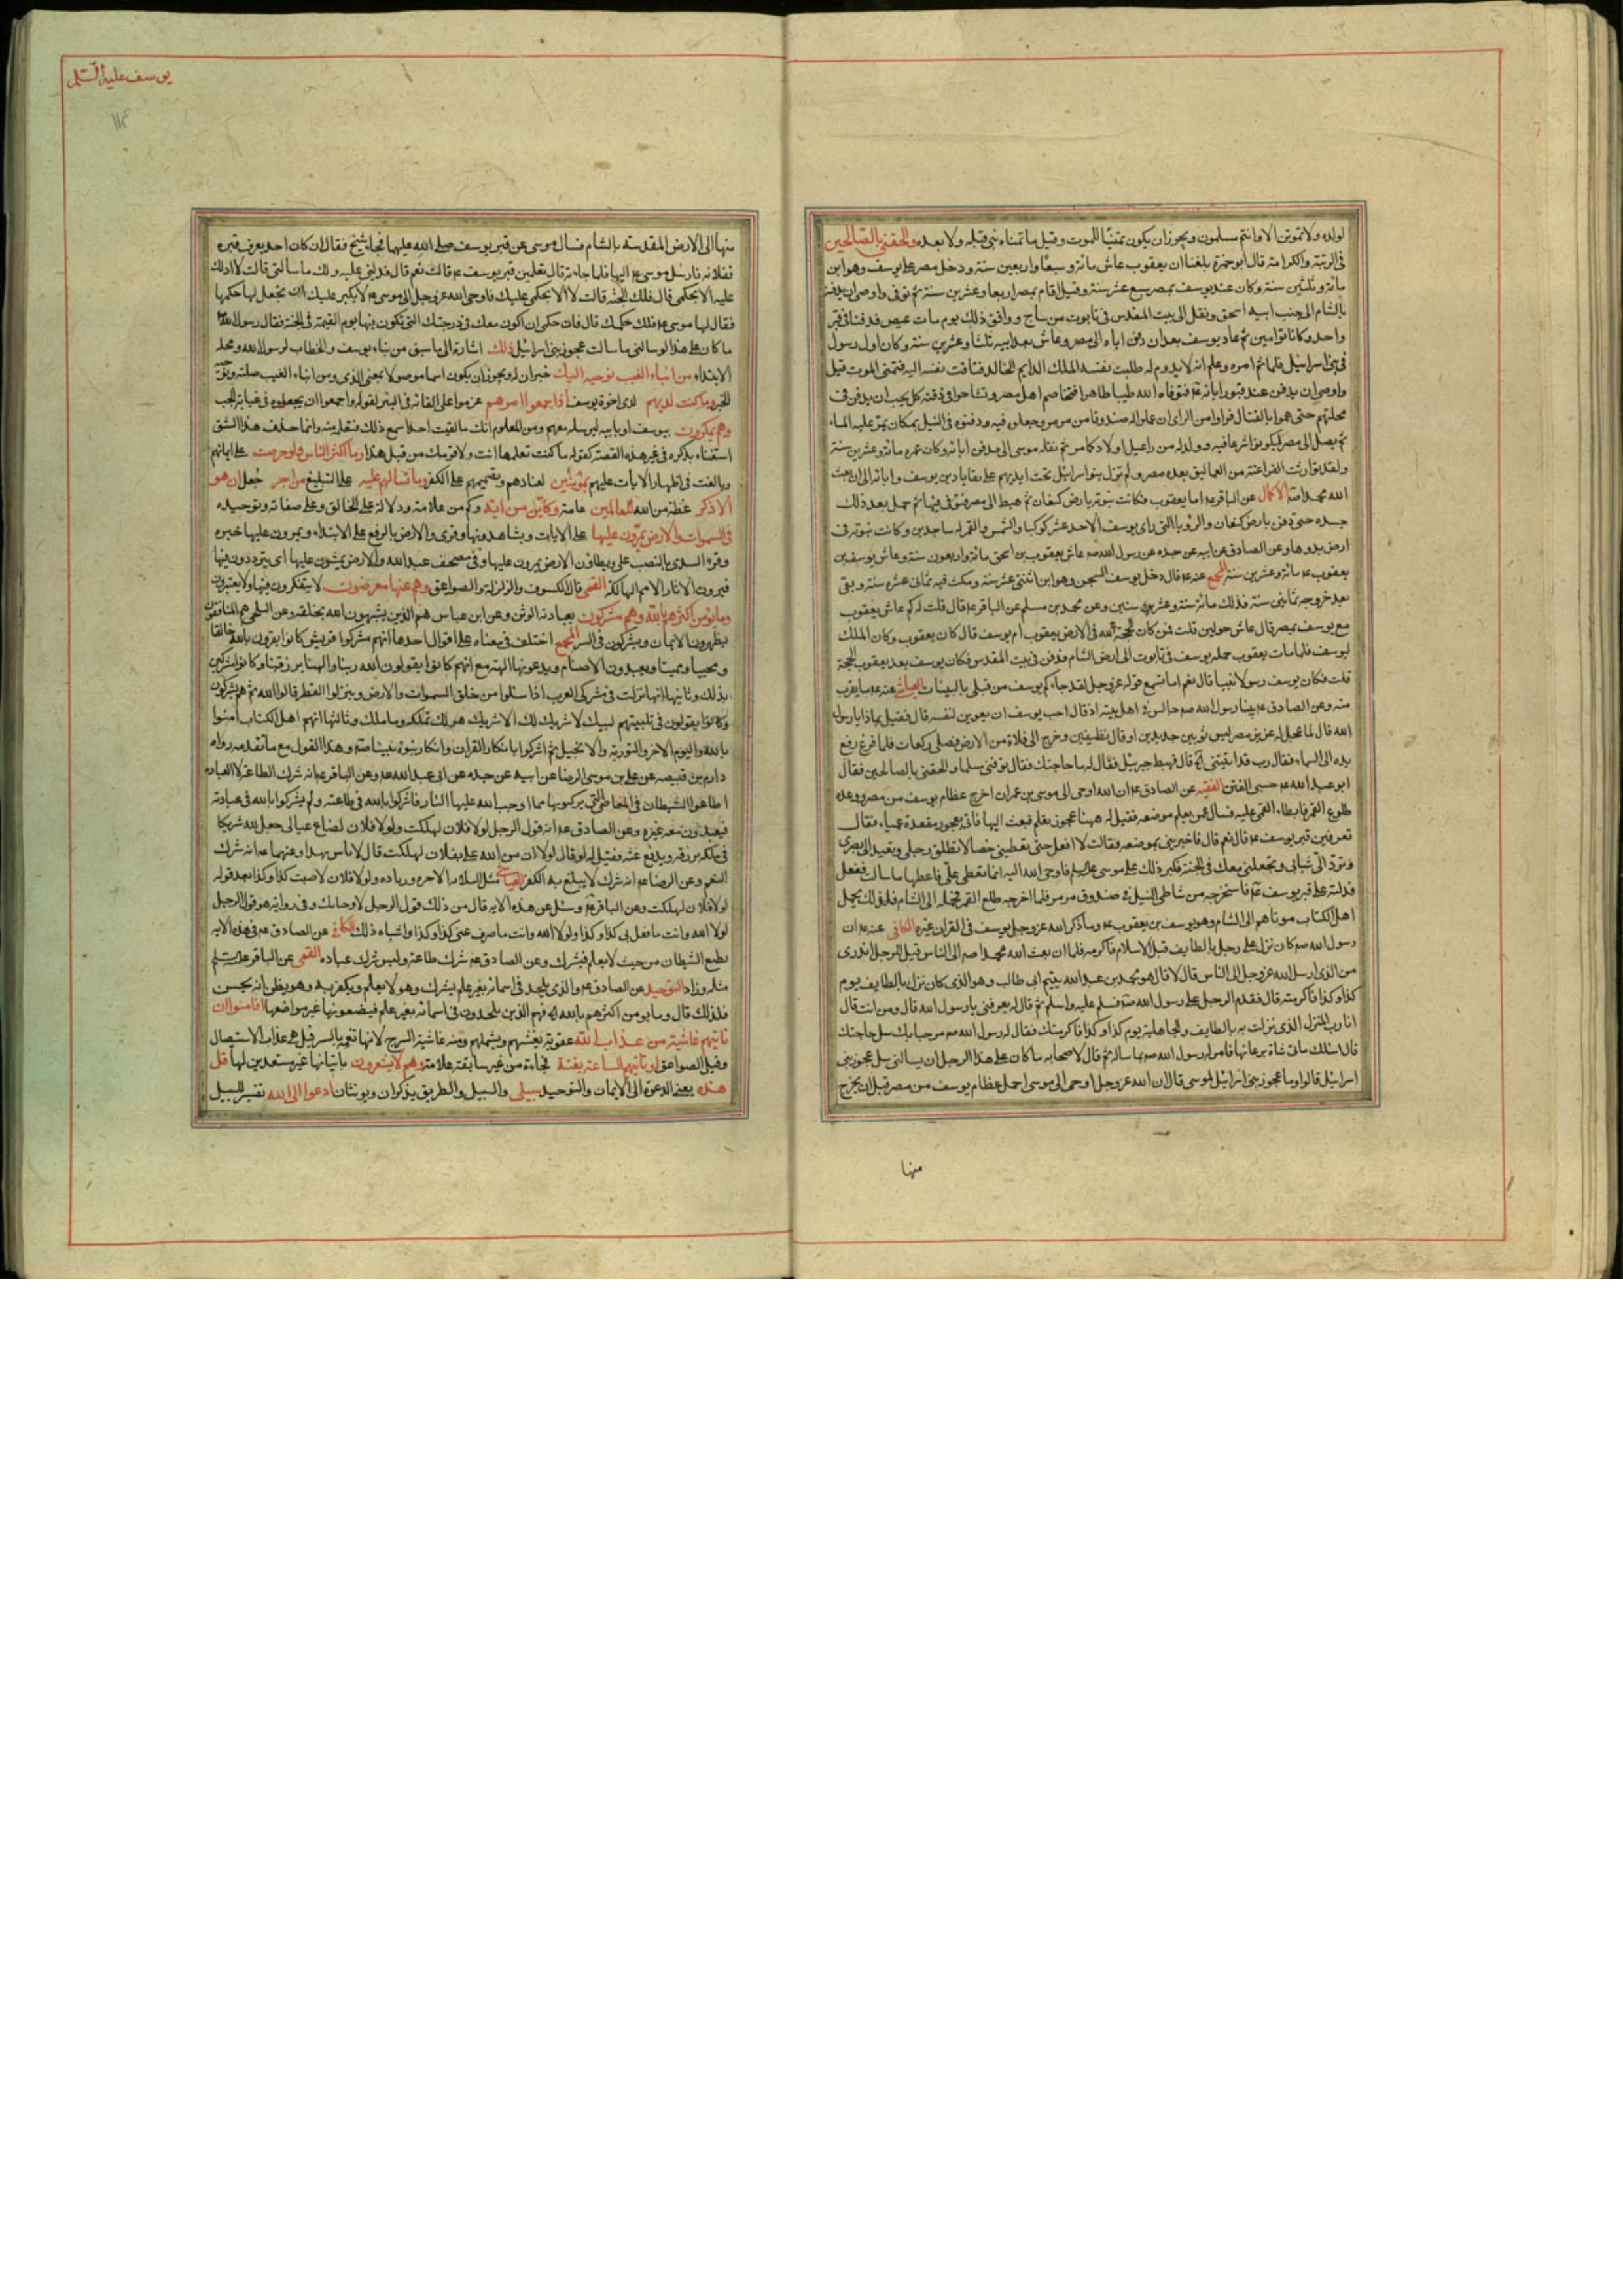 لولده ولا تموتن الا وانتم مسلمون ويجوز ان يكون تمنيا للموت وقيل ما تمناه نبي قبله ولا بعده والحقني بالصالحين
في الرتبة والكرامة قال ابو حمزة بلغنا ان يعقوب عاش مائة وسبعا واربعين سنة ودخل مصر على يوسف وهو ابن
مائة وثلثين سنة وكان عند يوسف بمصر سبع عشر سنة وقيل اقام بمصر اربعا وعشرين سنة ثم توفى واوصى ان يدفن
بالشام الى جنب ابيه اسحق ونقل الى بيت المقدس في تابوت من ساج ووافق ذلك يوم مات عيص فدفنا في قبر
واحد وكانا توامين ثم عاد يوسف بعد ان دفن اباه الى مصر وعاش بعد ابيه ثلثا وعشرين سنة وكان اول رسول
في بني اسرائيل فلما تم امره وعلم انه لا يدوم له طلبت نفسه الملك الدايم الخالد فتاقت نفسه اليه فتمنى الموت قيل
واوصى ان يدفن عند قبور ابائه فتوفاه الله طيبا طاهرا فتخاصم اهل مصر وتشاحوا في دفنه كل يحب ان يدفن في
محلتهم حتى هموا بالقتال فراوا من الراى ان عملوا له صندوقا من مرمر وجعلوه فيه ودفنوه في النيل بمكان يمر عليه الماء
ثم يصل الى مصر ليكونوا شرعا فيه وولد له من راعيل اولاد كما مر ثم نقله موسى الى مدفن ابائه وكان عمره مائة وعشرين سنة
ولقد توارثت الفراعنة من العماليق بعده مصر ولم تزل بنو اسرائيل تحت ايديهم على بقايا دين يوسف وابائه الى ان بعث
الله محمدا الاكمال عن الباقر اما يعقوب فكانت نبوته بارض كنعان ثم هبط الى مصر فتوفى فيها ثم حمل بعد ذلك
جسده حتى دفن بارض كنعان والرؤيا التي راى يوسف الاحد عشر كوكبا والشمس والقمر له ساجدين وكانت نبوته في
ارض بدوها وعن الصادق عن ابيه عن جده عن رسول الله عاش يعقوب بن اسحق مائة واربعون سنة وعاش يوسف بن
يعقوب مائة وعشرين سنة المجمع عنه قال دخل يوسف السجن وهو ابن اثنتي عشر سنة ومكث فيه ثماني عشره سنة وبقى
بعد خروجه ثمانين سنة فذلك مائة سنة وعشر سنين وعن محمد بن مسلم عن الباقر قال قلت له كم عاش يعقوب
مع يوسف بمصر قال عاش حولين قلت فمن كان الحجة لله في الارض يعقوب ام يوسف قال كان يعقوب وكان الملك
ليوسف فلما مات يعقوب حمله يوسف في تابوت الى ارض الشام فدفن في بيت المقدس فكان يوسف بعد يعقوب الحجة
قلت فكان يوسف رسولا نبيا قال نعم اما تسمع قوله عز وجل لقد جاءكم يوسف من قبل بالبينات العياشي عنه ما يقرب
منه وعن الصادق بينا رسول الله جالس في اهل بيته اذ قال احب يوسف ان
الله قال لما عزل له عزيز مصر لبس ثوبين جديدين او قال نظيفين وخرج الى فلاة من الارض فصلى ركعات فلما فرغ رفع
يده الى السماء فقال رب قد اتيتني قال فهبط جبرئيل فقال له ما حاجتك فقال توفني مسلما والحقني بالصالحين فقال
ابو عبد الله خشي الفتن الفقيه عن الصادق ان الله اوحى الى موسى بن عمران اخرج عظام يوسف من مصر ووعده
طلوع القمر فابطاء القمر عليه فسال عمن يعلم موضعه فقيل له ههنا عجوز تعلم فبعث اليها فاتى بعجوز مقعدة عمياء فقال
تعرفين قبر يوسف قالت نعم قال فاخبريني بموضعه فقالت لا افعل حتى تعطيني خصالا تطلق رجلي وتعيد الى بصري
وترد الى شبابي وتجعلني معك في الجنة فكبر ذلك على موسى فاوحى الله اليه انما تعطي علي فاعطها ما سالت ففعل
فدلته على قبر يوسف فاستخرجه من شاطئ النيل في صندوق مرمر فلما اخرجه طلع القمر فحمله الى الشام فلذلك يحمل
اهل الكتاب موتاهم الى الشام وهو يوسف بن يعقوب وما ذكر الله عز وجل يوسف في القران غيره الكافي عنه ان
رسول الله كان نزل على رجل بالطايف قبل الاسلام فاكرمه فلما ان بعث الله محمدا الى الناس قيل للرجل اتدري
من الذي ارسل الله عز وجل الى الناس قال لا قال هو محمد بن عبد الله يتيم ابي طالب وهو الذي كان نزل بالطايف يوم
كذا وكذا فاكرمته قال فقدم الرجل على رسول الله فسلم عليه واسلم ثم قال له تعرفني يا رسول الله قال ومن انت قال
انا رب المنزل الذي نزلت به بالطايف في الجاهلية يوم كذا وكذا فاكرمتك فقال له رسول الله مرحبا بك سل حاجتك
قال اسئلك مائتي شاة برعاتها فامر له رسول الله بما ساله ثم قال لاصحابه ما كان على هذا الرجل ان يسالني سل عجوز بني
اسرائيل قالوا وما عجوز بني اسرائيل لموسى قال ان الله عز وجل اوحى الى موسى احمل عظام يوسف من مصر قبل ان يخرج
منها
يوسف عليه السلم
منها الى الارض المقدسة بالشام فسال موسى عن قبر يوسف صلى الله عليهما فجاء شيخ فقال ان كان احد يعرف قبره
ففلانة فارسل موسى اليها فلما جاءته قال تعلمين قبر يوسف قالت نعم قال فدليني عليه ولك ما سالتي قالت لا ادلك
عليه الا بحكمي قال فلك الجنة قالت لا الا بحكمي عليك فاوحى الله عز وجل الى موسى لا يكبر عليك ان تجعل لها حكمها
فقال لها موسى فلك حكمك قال فان حكمي ان اكون معك في درجتك التي تكون فيها يوم القيمة في الجنة فقال رسول الله
ما كان على هذا لو سالني ما سالت عجوز بني اسرائيل ذلك اشارة الى ما سبق من نباء يوسف والخطاب لرسول الله ومحله
الابتداء من انباء الغيب نوحيه اليك خبران له ويجوز ان يكون اسما موصولا بمعنى الذي ومن انباء الغيب صلته ونوحيه
الخبر وما كنت لديهم لدى اخوة يوسف اذ اجمعوا امرهم عزموا على القائه في البئر لقوله واجمعوا ان يجعلوه في غيابة الجب
وهم يمكرون بيوسف او بابيه ليرسله معهم ومن المعلوم انك ما لقيت احدا سمع ذلك فتعلم منه وانما حذف هذا الشق
استغناء بذكره في غير هذه القصة كقوله ما كنت تعلمها انت ولا قومك من قبل هذا وما اكثر الناس ولو حرصت على ايمانهم
وبالغت في اظهار الايات عليهم بمؤمنين لعنادهم وتصميمهم على الكفر وما تسالهم عليه على التبليغ من اجر جعل ان هو
الا ذكر عظة من الله للعالمين عامة وكاين من اية وكم من علامة ودلالة على الخالق وعلى صفاته وتوحيده
في السموات والارض يمرون عليها على الايات ويشاهدونها وقرى والارض بالرفع على الابتداء ويمرون عليها خبره
وقرء السدى بالنصب على ويطاون الارض يمرون عليها وفي مصحف عبد الله والارض يمشون عليها اى يترددون فيها
فيرون الاثار الامم الهالكة القمي قال الكسوف والزلزلة والصواعق وهم عنها معرضون لا يتفكرون فيها ولا يعتبرون
وما يؤمن اكثرهم بالله وهم مشركون بعبادة الوثن وعن ابن عباس هم الذين يشبهون الله بخلقه وعن البلخي هم المنافقون
يظهرون الايمان ويشركون في السر المجمع اختلف في معناه على اقوال احدها انهم مشركوا قريش كانوا يقرون بالله خالقا
ومحييا ومميتا ويعبدون الاصنام ويدعونها الهة مع انهم كانوا يقولون الله ربنا والهنا يرزقنا وكانوا مشركين
بذلك وثانيها انها نزلت في مشركي العرب اذا سئلوا من خلق السموات والارض وينزل القطر قالوا الله ثم هم يشركون
وكانوا يقولون في تلبيتهم لبيك لا شريك لك الا شريك هو لك تملكه وما ملك وثالثها انهم اهل الكتاب امنوا
بالله واليوم الاخر والتورية والانجيل ثم اشركوا بانكار القران وانكار نبوة نبينا وهذا القول مع ما تقدمه رواه
دارم بن قبيصة عن علي بن موسى الرضا عن ابيه عن جده عن ابي عبد الله وعن الباقر انه شرك الطاعة لا العبادة
اطاعوا الشيطان في المعاصي التي يركبونها مما اوجب الله عليها النار فاشركوا بالله في طاعته ولم يشركوا بالله في عبادته
فيعبدون معه غيره وعن الصادق انه قول الرجل لولا فلان لهلكت ولولا فلان لضاع عيالي جعل لله شريكا
في ملكه يرزقه ويدفع عنه فقيل له لو قال لولا ان من الله على بفلان لهلكت قال لا باس بهذا وعنهما انه شرك
النعم وعن الرضا انه شرك لا يبلغ به الكفر العياشي
لولا فلان لهلكت وعن الباقر وسئل عن هذه الاية قال من ذلك قول الرجل لا وحياتك وفي رواية هو قول الرجل
لولا الله وانت ما فعل بي كذا وكذا ولولا الله وانت ما صرف عني كذا وكذا واشباه ذلك الكافي عن الصادق في هذه الاية
يطيع الشيطان من حيث لا يعلم فيشرك وعن الصادق شرك طاعة وليس شرك عبادة القمي عن الباقر
مثله وزاد التوحيد عن الصادق والذي يلحد في اسمائه بغير علم يشرك وهو لا يعلم ويكفر به وهو يظن انه يحسن
فلذلك قال وما يؤمن اكثرهم بالله فهم الذين يلحدون في اسمائه بغير علم فيضعونها غير مواضعها افامنوا ان
تاتيهم غاشية من عذاب الله عقوبة تغشيهم وتشملهم ومنه غاشية السرج لانها تعمه بالستر قيل هي عذاب الاستصال
وقيل الصواعق او تاتيهم الساعة بغتة فجاءة من غير سابقة علامة وهم لا يشعرون باتيانها غير مستعدين لها قل
هذه يعني الدعوة الى الايمان والتوحيد سبيلي والسبيل والطريق يذكران ويؤنثان ادعوا الى الله تفسير للسبيل